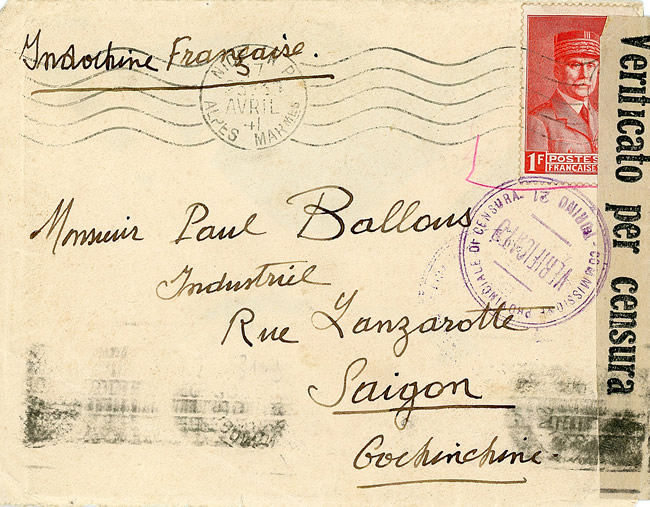 Indochine Française.
AVRIL
41
ALPES MARmes
1F POSTES
FRANÇAISES
Verificato per censura
COMMISSIONE PROVINCIALE DI CENSURA. 21
TORINO
VERIFICATO
Monsieur Paul Ballous
Industriel
Rue Lanzarotte
Saigon
Cochinchine